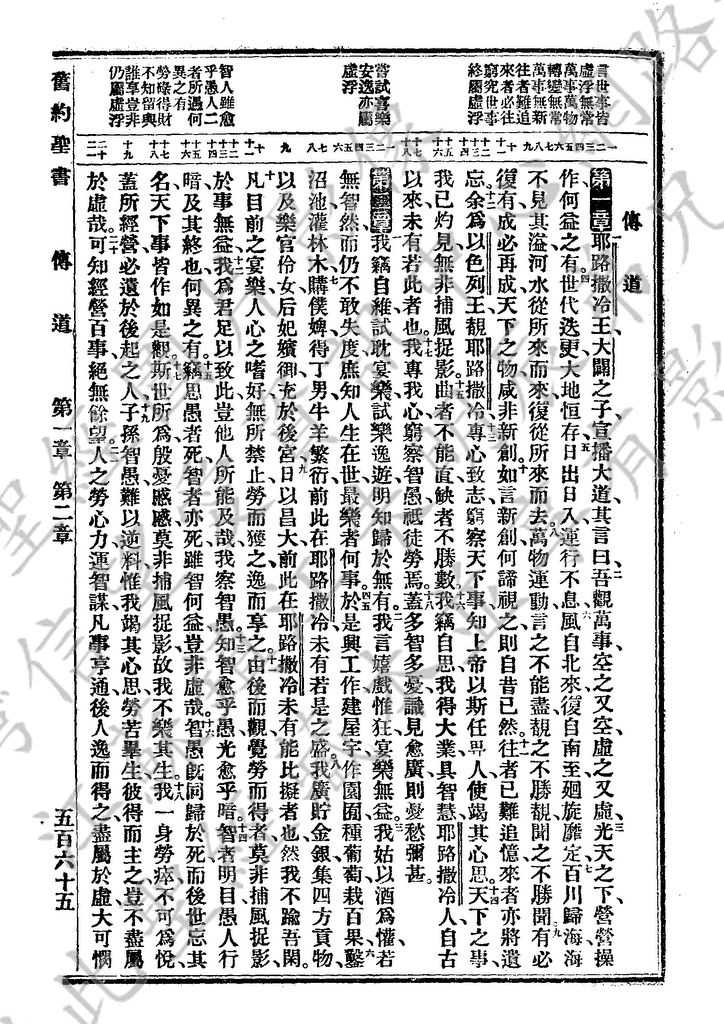 傳道
第一章 耶路撒冷王大闢之子宣播大道其言曰吾觀萬事空之又空虛之又虛光天之下營營操
作何益之有世代迭更大地恒存日出日入運行不息風自北來復自南至廻旋靡定百川歸海海
不見其溢河水從所來而來復從所來而去萬物運動言之不能盡覩之不勝覩聞之不勝聞有必
復有成必再成天下之物咸非新創如言新創何諦視之則自昔已然往者已難追憶來者亦將遺
忘余爲以色列王覩耶路撒冷專心致志窮察天下事知上帝以斯任畀人使竭其心思天下之事
我已灼見無非捕風捉影曲者不能直缺者不勝數我竊自思我得大業具智慧耶路撒冷人自古
以來未有若此者也我專我心窮察智愚祇徒勞焉蓋多智多憂識見愈廣則憂愁彌甚
第二章 我竊自雜試耽宴樂試樂逸遊明知歸於無有我言嬉戲惟狂宴樂無益我姑以酒爲懽若
無智然而仍不敢失度庶知人生在世最樂者何事於是興工作建屋宇作園囿種葡萄栽百果鑿
沼池灌林木購僕婢得丁男牛羊繁衍前此在耶路撒冷未有若是之盛我廣貯金銀集四方貢物
以及樂官伶女后妃嬪御充於後宮日以昌大前此在耶路撒冷未有能比擬者也然我不踰吾閑
凡目前之宴樂人心之嗜好無所禁止勞而獲之逸而享之由後而觀覺勞而得者莫非捕風捉影
於事無益我爲君足以致此豈他人所能及哉我察智愚知智愈乎愚光愈乎暗智者明目愚人行
暗及其終也何異之有竊思愚者死智者亦死雖智何益豈非虛哉智愚旣同歸於死而後世忘其
名天下事皆作如是觀斯世所爲殷憂慼慼莫非捕風捉影故我不樂其生我一身勞瘁不可爲悅
蓋所經營必遺於後起之人子孫智愚難以逆料惟我竭其心思勞苦畢生彼得而主之豈不盡屬
於虛哉可知經營百事絕無餘望人之勞心力運智謀凡事亨通後人逸而得之盡屬於虛大可憫
言世事皆
虛浮無常
萬事萬物
轉變無常
萬事無新
往者難追
來者必往
窮究世事
終屬虛浮
嘗試喜樂
安逸亦屬
虛浮
智人雖愈
乎愚人二
者所遇何
異之有
勞碌得財
不知留與
誰享豈非
仍屬虛浮
舊約聖書 傳道 第一章 第二章 五百六十五